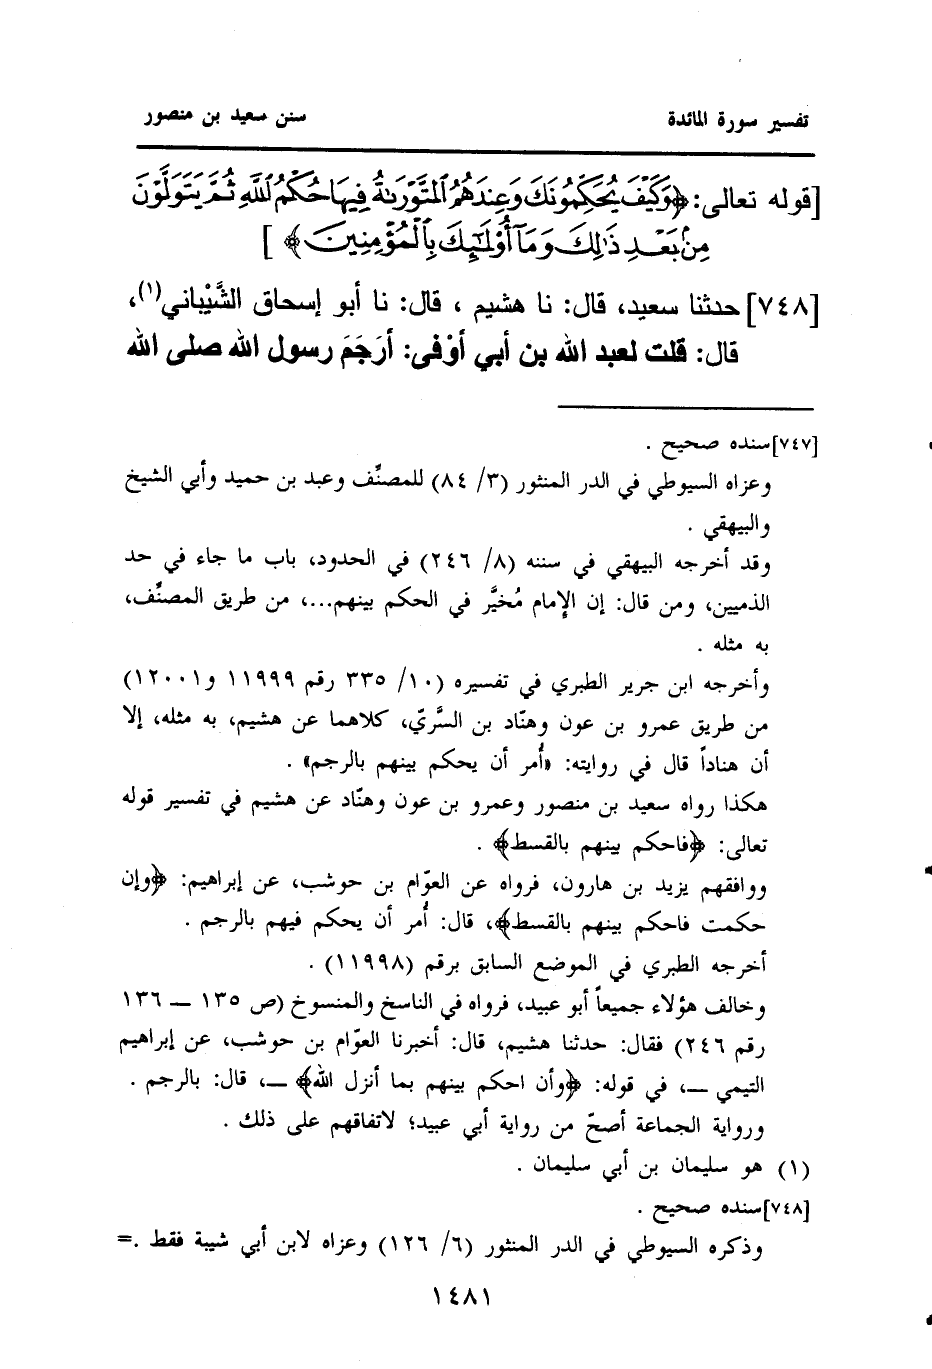 تفسير سورة المائدة سنن سعيد بن منصور
[قوله تعالى: ﴿وَكَيْفَ يُحَكِّمُونَكَ وَعِندَهُمُ ٱلتَّوْرَىٰةُ فِيهَا حُكْمُ ٱللَّهِ ثُمَّ يَتَوَلَّوْنَ
مِنۢ بَعْدِ ذَٰلِكَ وَمَآ أُوْلَٰٓئِكَ بِٱلْمُؤْمِنِينَ﴾ ]
[٧٤٨] حدثنا سعيد، قال: نا هشيم ، قال: نا أبو إسحاق الشَّيْباني(١)،
قال: قلت لعبد الله بن أبي أوْفى: أرَجَمَ رسول الله صلى الله
[٧٤٧] سنده صحيح .
وعزاه السيوطي في الدر المنثور (٣/ ٨٤) للمصنِّف وعبد بن حميد وأبي الشيخ
والبيهقي .
وقد أخرجه البيهقي في سننه (٨/ ٢٤٦) في الحدود، باب ما جاء في حد
الذميين، ومن قال: إن الإمام مُخيَّر في الحكم بينهم...، من طريق المصنِّف،
به مثله .
وأخرجه ابن جرير الطبري في تفسيره (١٠/ ٣٣٥ رقم ١١٩٩٩ و١٢٠٠١)
من طريق عمرو بن عون وهنّاد بن السَّريّ، كلاهما عن هشيم، به مثله، إلا
أن هناداً قال في روايته: «أُمر أن يحكم بينهم بالرجم» .
هكذا رواه سعيد بن منصور وعمرو بن عون وهنّاد عن هشيم في تفسير قوله
تعالى: ﴿فاحكم بينهم بالقسط﴾ .
ووافقهم يزيد بن هارون، فرواه عن العوّام بن حوشب، عن إبراهيم: ﴿وإن
حكمت فاحكم بينهم بالقسط﴾، قال: أُمر أن يحكم فيهم بالرجم .
أخرجه الطبري في الموضع السابق برقم (١١٩٩٨) .
وخالف هؤلاء جميعاً أبو عبيد، فرواه في الناسخ والمنسوخ (ص ١٣٥ ــ ١٣٦
رقم ٢٤٦) فقال: حدثنا هشيم، قال: أخبرنا العوّام بن حوشب، عن إبراهيم
التيمي ــ، في قوله: ﴿وأن احكم بينهم بما أنزل الله﴾ ــ، قال: بالرجم .
ورواية الجماعة أصحّ من رواية أبي عبيد؛ لاتفاقهم على ذلك .
(١) هو سليمان بن أبي سليمان .
[٧٤٨] سنده صحيح .
وذكره السيوطي في الدر المنثور (٦/ ١٢٦) وعزاه لابن أبي شيبة فقط .=
١٤٨١